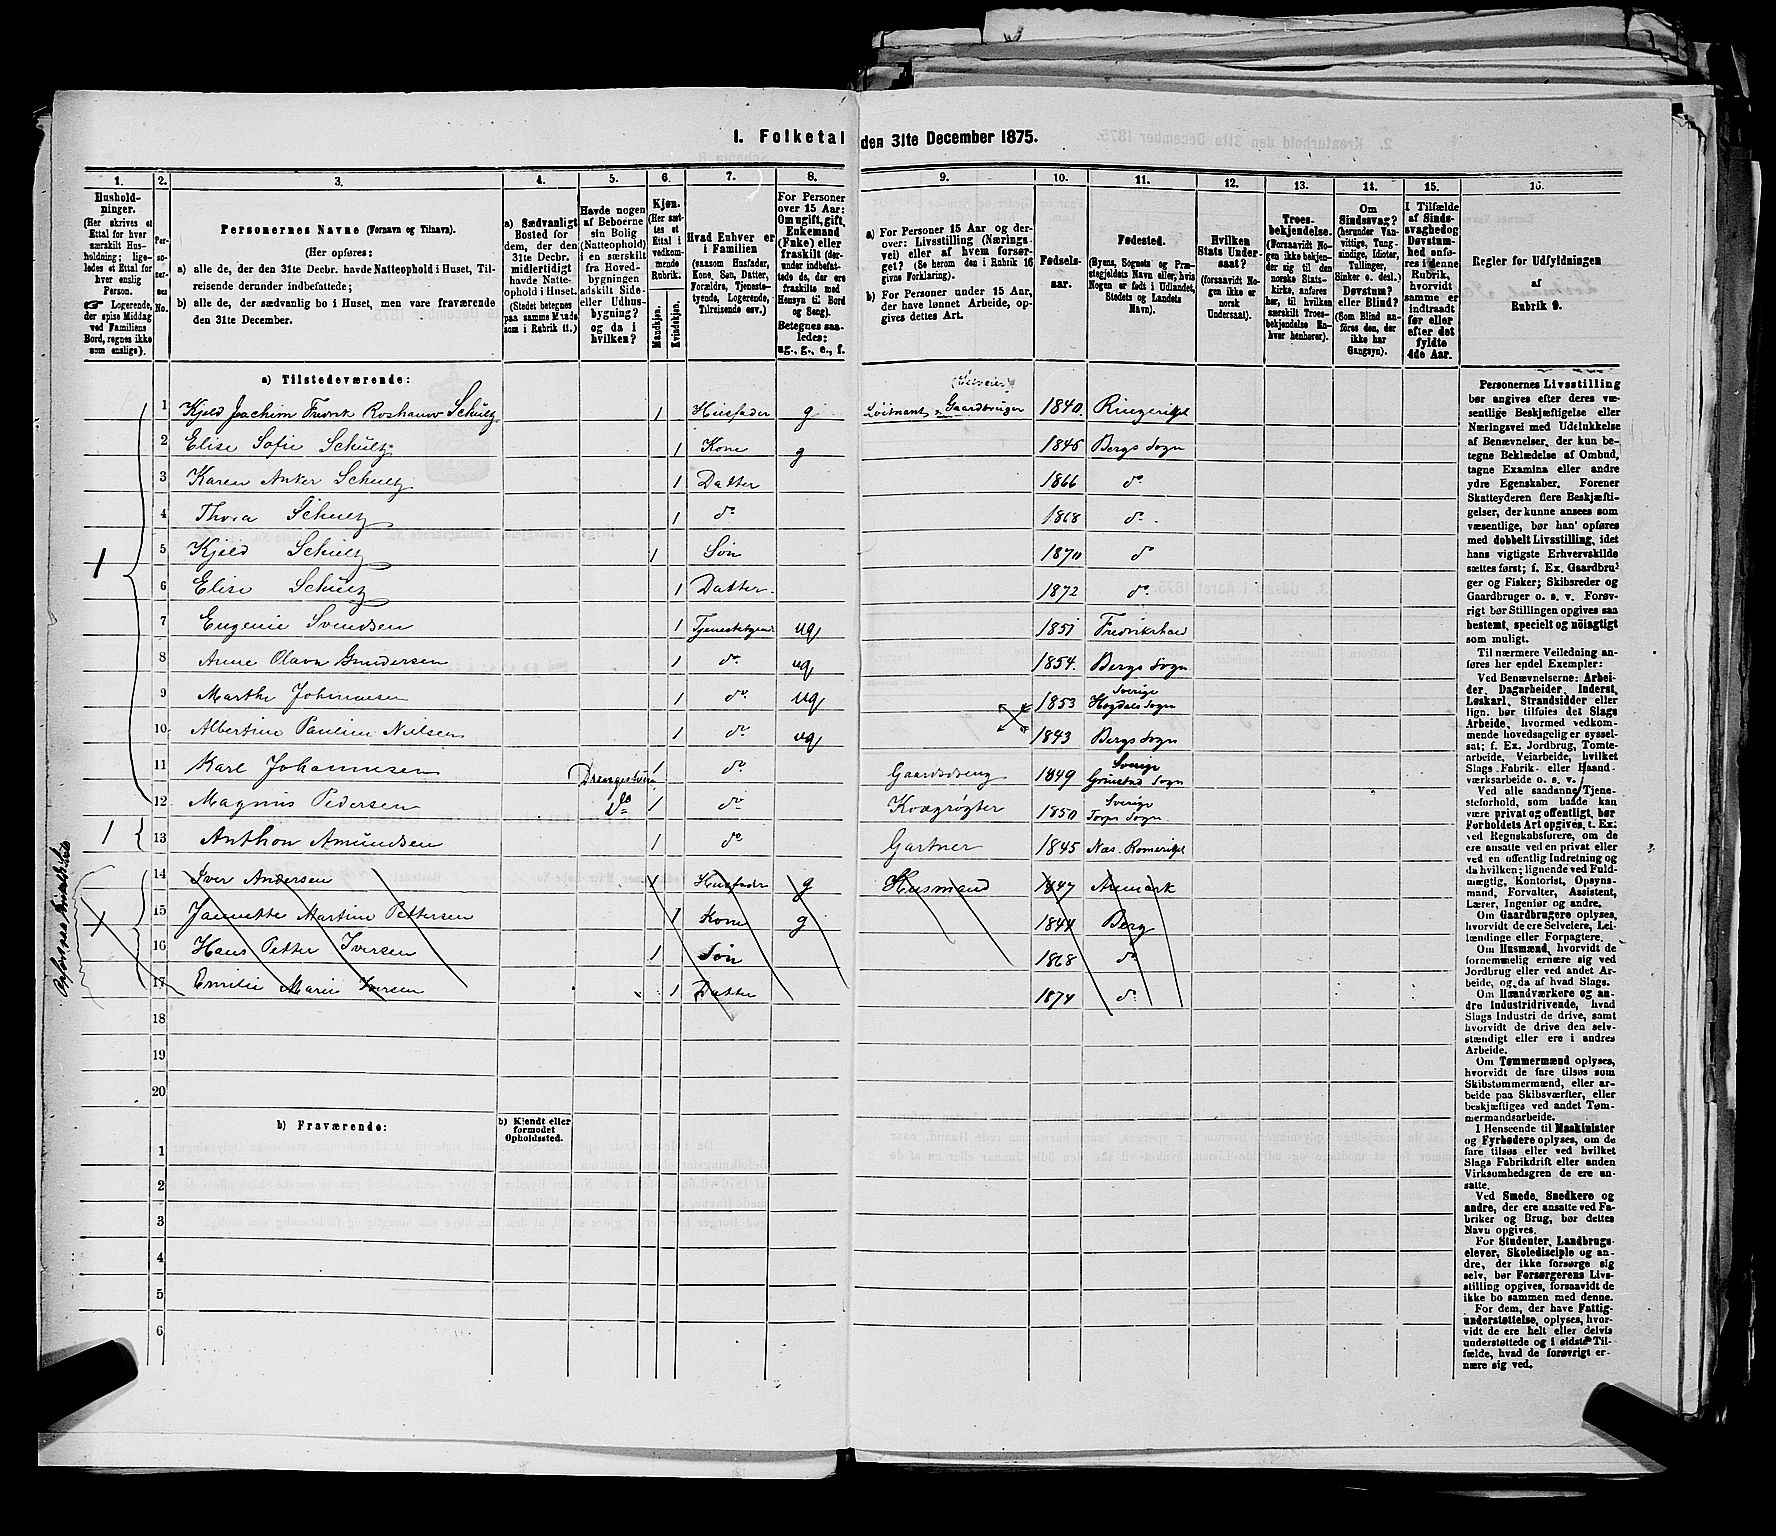 1. Folketal den 31te December 1875.
1. 2. 3. 4. 5. 6. 7. 8. 9. 10. 11. 12. 13. 14. 15. 16.
Hushold-
ninger.
(Her skrives et
Ettal for hver
særskilt Hus-
holdning; lige-
ledes et Ettal for
hver enslig
Person.
☞ Logerende,
der spise Middag
ved Familiens
Bord, regnes ikke
som enslige).
Per-
so-
ner-
nes
No.
Personernes Navne (Fornavn og Tilnavn).
(Her opføres:
a) alle de, der den 31te Decbr. havde Natteophold i Huset, Til-
reisende derunder indbefattede;
b) alle de, der sædvanlig bo i Huset, men vare fraværende
den 31te December.
a) Sædvanligt
Bosted for
dem, der den
31te Decbr.
midlertidigt
havde Natte-
ophold i Huset
(Stedet betegnes
paa samme Maade
som i Rubrik 11.)
Havde nogen
af Beboerne
sin Bolig
(Natteophold)
i en særskilt
fra Hoved-
bygningen
adskilt Side-
eller Udhus-
bygning?
og da i
hvilken?
Kjøn.
(Her sæt-
tes et
Ettal i
vedkom-
mende
Rubrik.
Mandkjøn.
Kvindekjøn.
Hvad Enhver er
i Familien
(saasom Husfader,
Kone, Søn, Datter,
Forældre, Tjeneste-
tyende, Logerende,
Tilreisende osv.)
For Personer
over 15 Aar:
Om ugift, gift,
Enkemand
(Enke) eller
fraskilt (der-
under indbefat-
tede de, der ere
fraskilte med
Hensyn til Bord
og Seng).
Betegnes saa-
ledes:
ug., g., e., f.
a) For Personer 15 Aar og der-
over: Livsstilling (Nærings-
vei) eller af hvem forsør-
get? (Se herom den i Rubrik 16
givne Forklaring).
b) For Personer under 15 Aar,
der have lønnet Arbeide, op-
gives dettes Art.
Fødsels-
aar.
Fødested.
(Byens, Sognets og Præ-
stegjeldets Navn eller, hvis
Nogen er født i Udlandet,
Stedets og Landets
Navn).
Hvilken
Stats Under-
saat?
(forsaavidt No-
gen ikke er
norsk
Undersaat).
Troes-
bekjendelse.
(Forsaavidt No-
gen ikke bekjen-
der sig til den
norske Stats-
kirke, anføres
her, til hvilken
særskilt Troes-
bekjendelse En-
hver henhører).
Om
Sindssvag?
(herunder Van-
vittige, Tung-
sindige, Idioter,
Tullinger,
Sinker o. desl.)
Døvstum?
eller Blind?
(Som Blind an-
føres den, der
ikke har
Gangsyn).
I Tilfælde
af Sinds-
svaghed og
Døvstum-
hed anfø-
res i denne
Rubrik,
hvorvidt
samme er
indtraadt
før eller
efter det
fyldte
4de Aar.
Regler for Udfyldningen
af
Rubrik 9.
a) Tilstedeværende:
(Selveier)
1 Kjeld Joachim Fredrik Roshauw Schultz 1 Husfader g Løitnant & Gaardbruger 1840. Ringeriget
2 Elise Sofie Schultz 1 Kone g 1846 Bergs Sogn
3 Karen Anker Schultz 1 Datter 1866 do
4 Thora Schultz 1 do 1868 do.
1 5 Kjeld Schultz 1 Søn 1870 do
6 Elise Schultz 1 Datter. 1872 do
7 Eugenie Svendsen 1 Tjenestetyende ug 1851 Fredrikshald
8 Anne Olava Gundersen 1 do. ug 1854. Bergs Sogn
9 Marthe Johannesen 1 do ug 1853 Sverige Hogdals Sogn
10 Albertine Pauline Nielsen 1 do ug 1843 Bergs Sogn
11 Karl Johannesen Drængestuen 1 do Gaardsdreng 1849 Sverige Grinstad Sogn
12 Magnus Pedersen do 1 do Kvægrøgter 1850 Sverige Torps Sogn
1 13 Anthon Amundsen 1 do Gartner 1845 Næs. Romeriget
14 Iver Andersen 1 Husfader g Husmand 1847 Aremark
1 15 Jannette Martine Pettersen 1 Kone g 1844 Berg
16 Hans Petter Iversen 1 Søn 1868 do
17 Emilie Marie Iversen 1 Datter 1874 do
18
19
20
b) Fraværende:
b) Kjendt eller
formodet
Opholdssted.
1
2
3
4
5
6
Personernes Livsstilling
bør angives efter deres væ-
sentlige Beskjæftigelse eller
Næringsvei med Udelukkelse
af Benævnelser, der kun be-
tegne Beklædelse af Ombud,
tagne Examina eller andre
ydre Egenskaber. Forener
Skatteyderen flere Beskjæfti-
gelser, der kunne ansees som
væsentlige, bør han opføres
med dobbelt Livsstilling, idet
hans vigtigste Erhvervskilde
sættes først; f. Ex. Gaardbru-
ger og Fisker; Skibsreder og
Gaardbruger o. s. v. Forøv-
rigt bør Stillingen opgives saa
bestemt, specielt og nøiagtigt
som muligt.
Til nærmere Veiledning an-
føres her endel Exempler:
Ved Benævnelserne: Arbei-
der, Dagarbeider, Inderst,
Løskarl, Strandsidder eller
lign. bør tilføies det Slags
Arbeide, hvormed vedkom-
mende hovedsagelig er syssel-
sat; f. Ex. Jordbrug, Tomte-
arbeide, Veiarbeide, hvilket
Slags Fabrik- eller Haand-
værksarbeide o. s. v.
Ved alle saadanne Tjene-
steforhold, som baade kan
være privat og offentligt, bør
Forholdets Art opgives, f. Ex:
ved Regnskabsførere, om de
ere ansatte ved en privat eller
ved en offentlig Indretning og
da hvilken; lignende ved Fuld-
mægtig, Kontorist, Opsyns-
mand, Forvalter, Assistent,
Lærer, Ingeniør og andre.
Om Gaardbrugere oplyses,
hvorvidt de ere Selveiere, Lei-
lændinge eller Forpagtere.
Om Husmænd, hvorvidt de
fornemmelig ernære sig ved
Jordbrug eller ved andet Ar-
beide, og da af hvad Slags.
Om Haandværkere og an-
dre Industridrivende, hvad
Slags Industri de drive, samt
hvorvidt de drive den selv-
stændigt eller ere i andres
Arbeide.
Om Tømmermænd oplyses,
hvorvidt de fare tilsøs som
Skibstømmermænd, eller ar-
beide paa Skibsværfter, eller
beskjæftiges ved andet Tøm-
mermandsarbeide.
I Henseende til Maskinister
og Fyrbødere oplyses, om de
fare tilsøs eller ved hvilket
Slags Fabrikdrift eller anden
Virksomhedsgren de ere an-
satte.
Ved Smede, Snedkere og
andre, der ere ansatte ved Fa-
briker og Brug, bør dettes
Navn opgives.
For Studenter, Landbrugs-
elever, Skoledisciple og an-
dre, der ikke forsørge sig
selv, bør Forsørgerens Livs-
stilling opgives, forsaavidt de
ikke bo sammen med denne.
For dem, der have Fattig-
understøttelse, oplyses, hvor-
vidt de ere helt eller delvis
understøttede og i sidste Til-
fælde, hvad de forøvrigt er-
nære sig ved.